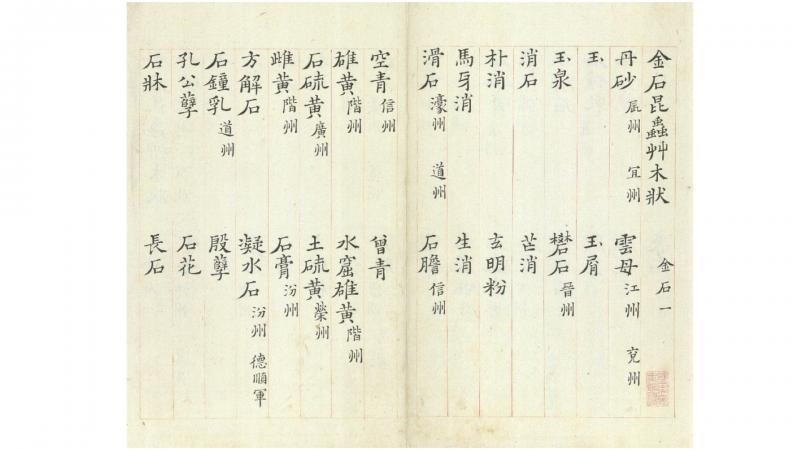 金石昆蟲艸木狀 金石一
丹砂 辰州 宜州 雲母 江州 兗州
玉 玉屑
玉泉 礬石 晉州
消石 芒消
朴消 玄明粉
馬牙消 生消
滑石 濠州 道州 石膽 信州
空青 信州 曾青
雄黃 階州 水窟雄黃 階州
石硫黃 廣州 土硫黃 榮州
雌黃 階州 石膏 汾州
方解石 凝水石 汾州 德順軍
石鐘乳 道州 殷孽
孔公孽 石花
石牀 長石